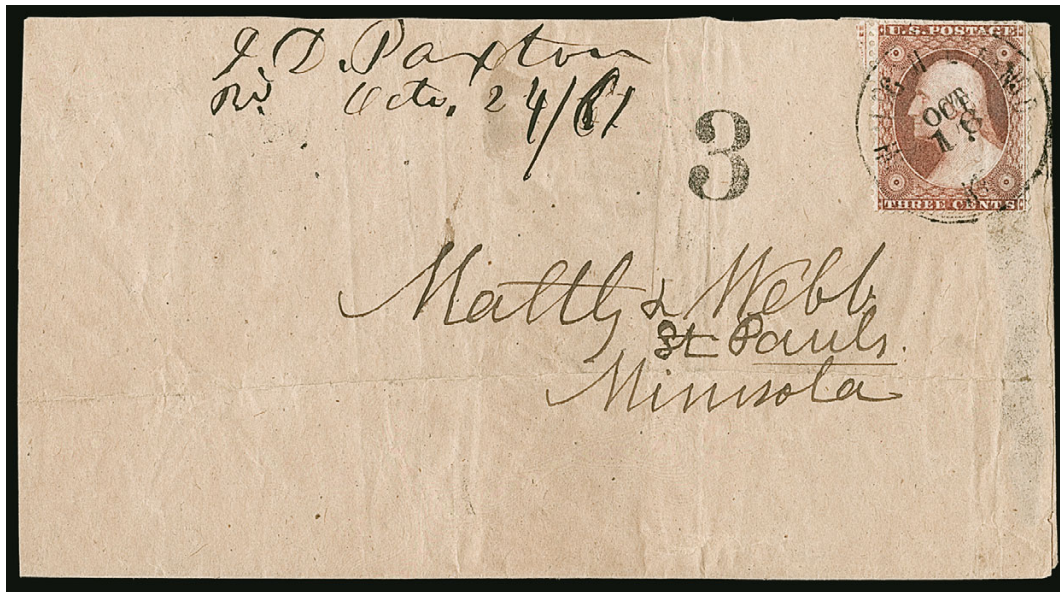 J. D. Paxton
Octr. 24/61
3
U.S. POSTAGE
OCT
18
THREE CENTS
Mattly & Webb
St Pauls.
Minisola